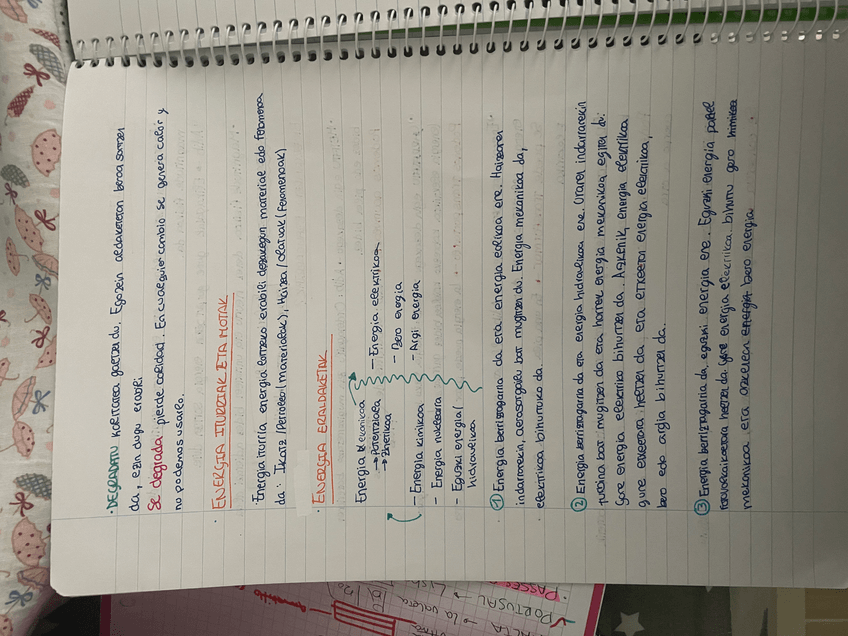 · DEGRADATU KALITATEA galtzen du. Egozein aldaketetan beroa sortzen
da, ezin dugu erabili
Se degrada: pierde calidad. En cualquier cambio se genera calor y
no podemos usarlo.
· ENERGIA ITURRIAK ETA MOTAK
· Energia iturria, energia lortzeko erabili dezakegun materiale edo fenomeno
da: Ikatz/Petrolioa (materialak), Haizea/olatuak (fenomenoak)
· ENERGIA ERALDAKETAK
Energia Mekanikoa
→ Potentziala
→ Zinetikoa
- Energia kimikoa
- Energia nuklearra
- Eguzki energia/
hidraulikoa
- Energia elektrikoa
- Bero energia
- Argi energia
① Energia berriztagarria da eta energia eolikoa ere. Haizearen
indarrarekin, aerosorgailu bat mugitzen du. Energia mekanikoa da,
elektrikoa bihurtuko da.
② Energia berriztagarria da eta energia hidraulikoa ere. Uraren indarrarekin
turbina bat mugitzen da eta horrek energia mekanikoa egiten du.
Gero energia elektriko bihurtzen da. Azkenik, energia elektrikoa
gure etxeetara heltzen da eta etxeetan energia elektrikoa,
bero edo argia bihurtzen da.
③ Energia berriztagarria da, eguzki energia ere. Eguzki energia panel
fotovoltaikoetara heltzen da gure energia elektrikoa bihurtu gero kimikoa
mekanikoa eta azkenean energia bero energia
PORTUGAL → La valeta